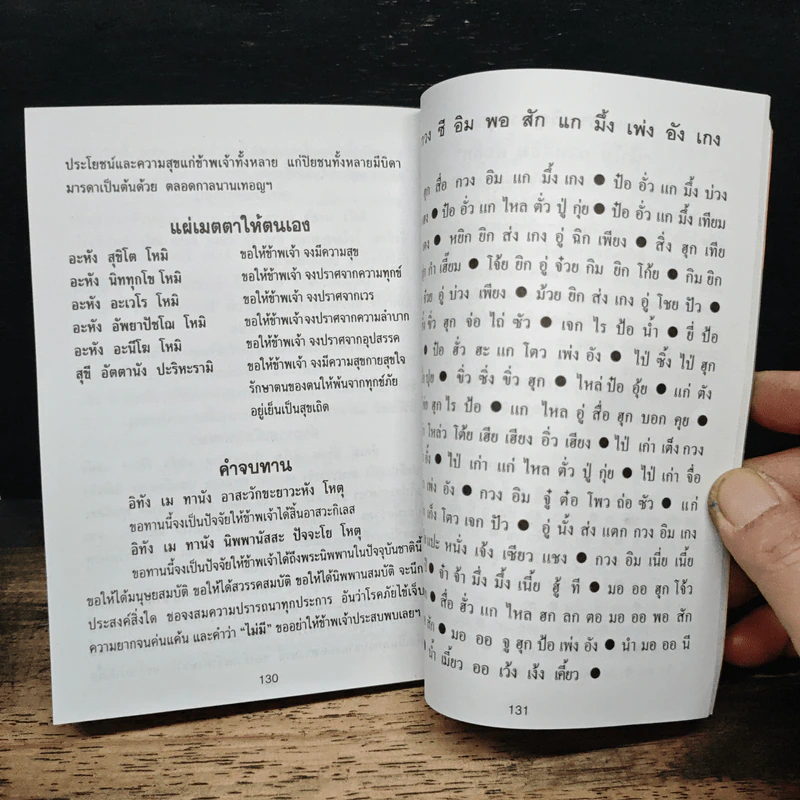 ประโยชน์และความสุขแก่ข้าพเจ้าทั้งหลาย แก่ปิยชนทั้งหลายมีบิดา
มารดาเป็นต้นด้วย ตลอดกาลนานเทอญฯ
แผ่เมตตาให้ตนเอง
อะหัง สุขิโต โหมิ ขอให้ข้าพเจ้า จงมีความสุข
อะหัง นิททุกโข โหมิ ขอให้ข้าพเจ้า จงปราศจากความทุกข์
อะหัง อะเวโร โหมิ ขอให้ข้าพเจ้า จงปราศจากเวร
อะหัง อัพยาปัชโฌ โหมิ ขอให้ข้าพเจ้า จงปราศจากความลำบาก
อะหัง อะนีโฆ โหมิ ขอให้ข้าพเจ้า จงปราศจากอุปสรรค
สุขี อัตตานัง ปะริหะรามิ ขอให้ข้าพเจ้า จงมีความสุขกายสุขใจ
รักษาตนของตนให้พ้นจากทุกข์ภัย
อยู่เย็นเป็นสุขเถิด
คำจบทาน
อิทัง เม ทานัง อาสะวักขะยาวะหัง โหตุ
ขอทานนี้จงเป็นปัจจัยให้ข้าพเจ้าได้สิ้นอาสวะกิเลส
อิทัง เม ทานัง นิพพานัสสะ ปัจจะโย โหตุ
ขอทานนี้จงเป็นปัจจัยให้ข้าพเจ้าได้ถึงพระนิพพานในปัจจุบันชาตินี้
ขอให้ได้มนุษยสมบัติ ขอให้ได้สวรรคสมบัติ ขอให้ได้นิพพานสมบัติ จะนึก
ประสงค์สิ่งใด ขอจงสมความปรารถนาทุกประการ อันว่าโรคภัยไข้เจ็บ
ความยากจนค่นแค้น และคำว่า "ไม่มี" ขออย่าให้ข้าพเจ้าประสบพบเลยฯ
130
กวง ซี อิม พอ สัก แก มึ้ง เพ่ง อัง เกง
ฮุก สื่อ กวง อิม แก มึ้ง เกง ● ป๋อ อั่ว แก มึ้ง บ่วง
● ป๋อ อั่ว แก ไหล ตั่ว ปู่ กุ่ย ● ป๋อ อั่ว แก มึ้ง เทียม
● หยิก ยิก ส่ง เกง อู่ ฉิก เพียง ● สิ่ง ฮุก เทีย
กำ เฮี้ยม ● โจ้ย ยิก อู่ จ๋วย กิม ยิก โก้ย ● กิม ยิก
อู่ บ่วง เพียง ● ม้วย ยิก ส่ง เกง อู่ โชย ปัว ●
ขิ่ว ฮุก จ่อ ไถ่ ซัว ● เจก ไร ป๋อ น้ำ ● ยี่ ป๋อ
● ป๋อ ฮั่ว ฮะ แก โตว เพ่ง อัง ● ไป่ ซิ้ง ไป่ ฮุก
● ขิ่ว ซึ่ง ขิ่ว ฮุก ● ไหล่ ป๋อ อุ้ย ● แก่ ตัง
ฮุก ไร ป๋อ ● แก ไหล อู่ สื่อ ฮุก บอก คุย ●
ไหล่ว โด้ย เฮีย เฮียง อิ่ว เฮียง ● ไป่ เก่า เต็ง กวง
● ไป่ เก่า แก่ ไหล ตั่ว ปู่ กุ่ย ● ไป่ เก่า จื่อ
เพ่ง อัง ● กวง อิม จู๋ ต๋อ โพว ถ่อ ซัว ● แก่
เต็ง โตว เจก ปัว ● อู่ นั้ง ส่ง แตก กวง อิม เกง
หนั่ง เจ้ง เซียว แชง ● กวง อิม เนี่ย เนี้ย
● จำ จ้า มึ่ง มึ้ง เนี้ย ฮู้ ที ● มอ ออ ฮุก โจ้ว
● สื่อ ฮั่ว แก ไหล ฮก ลก ตอ มอ ออ พอ สัก
● มอ ออ จู ฮุก ป๋อ เพ่ง อัง ● นำ มอ ออ นี
น้ำ เมี้ยว ออ เว้ง เง้ง เคี้ยว ●
131